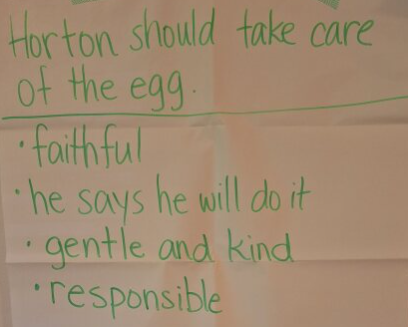 Horton should take care
of the egg.
• faithful
• he says he will do it
• gentle and kind
• responsible